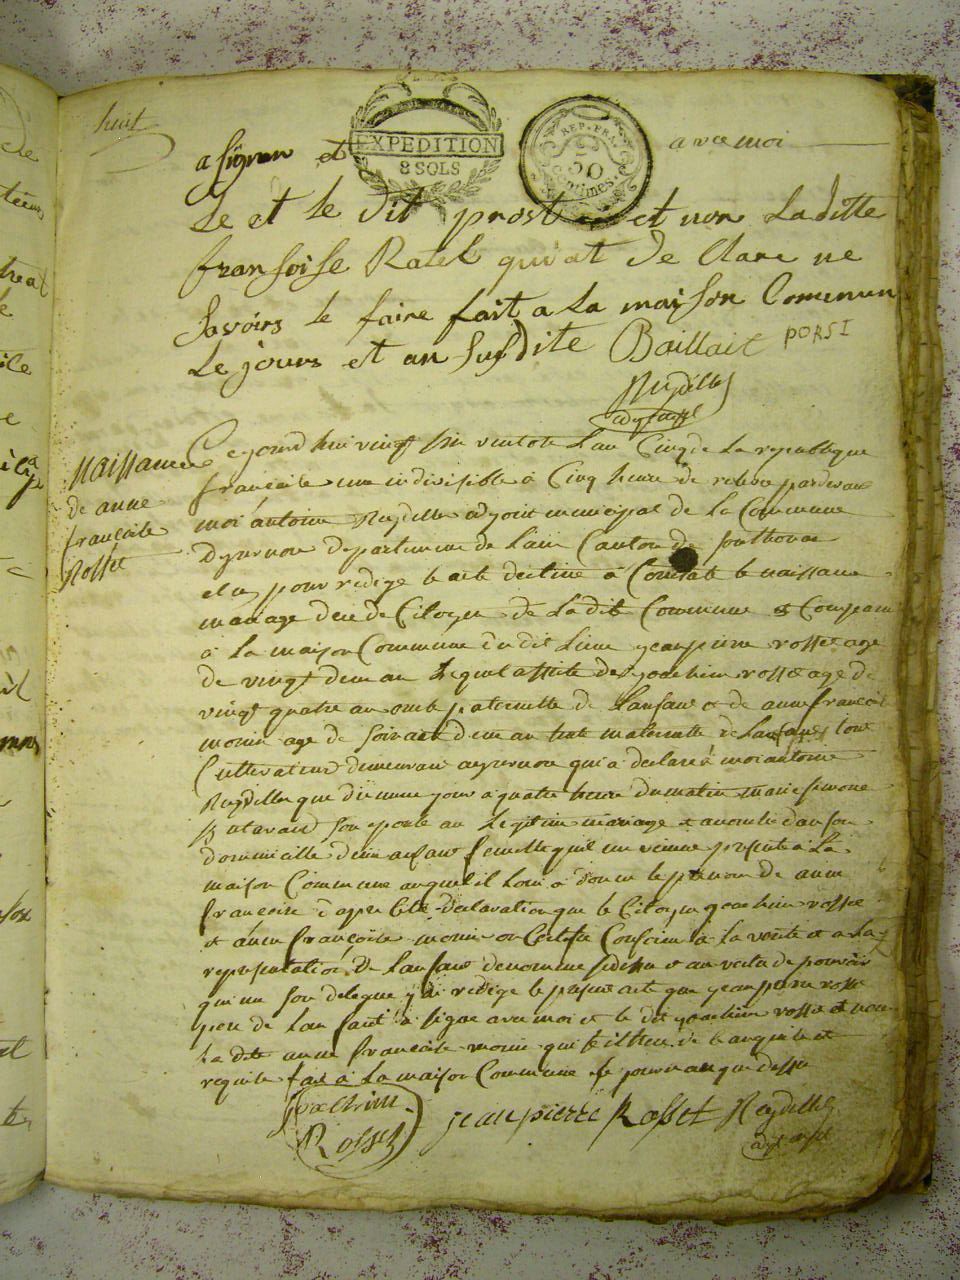 huit
EXPEDITION
8 SOLS
REP. FRA.
50
centimes
a signer et avec moi
Le et le dit prost et non Laditte
fransoise Ratel qui at de Clare ne
savoirs le faire fait a la maison Comenun
Le jours et an susdite Baillait PORSI
Reydellet
Naissance
de anne
françoise
Rosset
Cejourd hui vingt six ventose Lan Cinq de La republique
francaise une indivisible à Cinq heure de relevé pardevan
moi antoine Reydellet adjoint municipal de La Commune
departement de Lain Canton de Sonthonax
elu pour rédigé le acte destiné à Constaté le naissance
mariage décé de Citoyen de Ladite Commune et Comparu
à La maison Commune du dit Lieu jean pierre rosset agé
de vingt deux an Lequel assisté de joachim rosset agé de
vingt quatre an oncle paternelle de Lanfant et de anne françoise
monin agé de soixante deux an tante maternelle de Lanfant tous
Cultivateur demeurant qui à déclaré à moi antoine
Reydellet que dit même jour à quatre heure du matin marie
son epouse an Legitime mariage et acouché dan son
domicille d'une anfant femelle quil me vienne présenté à La
maison Commune auquel il Loui à donné le prenom de anne
francoise d'apre Cete declaration que le Citoyen joachim rosset
et anne françoise monin on Certifié Conforme à La verité et a La
representation De Lanfant denommé et an vertu de pouvoir
qui me son delegué j'ai redigé le présent acte que jean pierre rosset
pere de Lanfant à signé avec moi et le dit joachim rosset et non
La dite anne francoise monin qui de Lanquité et
requite fait à La maison Commune le jour et an que dessu
Joachim
Rosset
jean pierre Rosset Reydellet